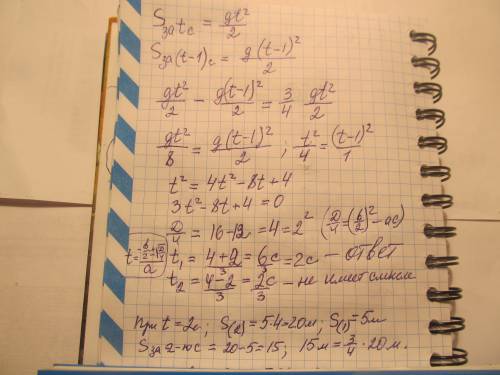 S за t с = gt²/2
S за (t-1) с = g(t-1)²/2
gt²/2 - g(t-1)²/2 = 3/4 gt²/2
gt²/8 = g(t-1)²/2 ; t²/4 = (t-1)²/1
t² = 4t² - 8t + 4
3t² - 8t + 4 = 0
D/4 = 16 - 12 = 4 = 2² (D/4 = (b/2)² - ac)
t = (-b/2 ± √D/4)/a
t₁ = (4+2)/3 = 6c/3 = 2c - ответ
t₂ = (4-2)/3 = 2c/3 - не имеет смысла
При t = 2c; S(2) = 5·4 = 20м; S(1) = 5м
S за 2-ю с = 20 - 5 = 15; 15м = 3/4 · 20м.